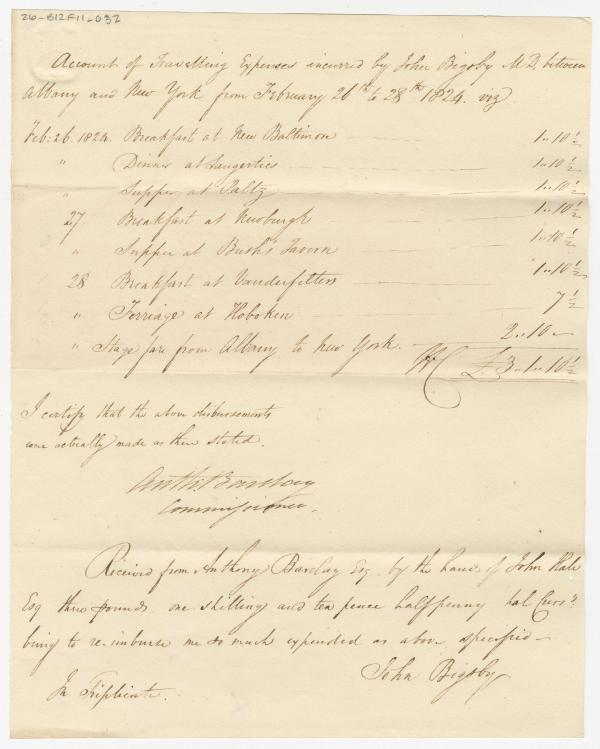 26-B12F11-032
Account of Travelling Expenses incurred by John Bigsby M.D. between
Albany and New York from February 26th to 28th 1824. viz
Feb: 26. 1824. Breakfast at New Baltimore 1..10½
" Dinner at Saugerties 1..10½
" Supper at Paltz 1..10½
27 Breakfast at Newburgh 1..10½
" Supper at Bush's Tavern 1..10½
28 Breakfast at Vanderfitters 1..10½
" Ferriage at Hoboken 7½
" Stage fare from Albany to New York. 2..10..
£3..1..10½
I certify that the above disbursements
were actually made as there stated.
Anth: Barclay
Commissioner.
Received from Anthony Barclay Esq. by the hands of John Hale
Esq three pounds one shilling and ten pence halfpenny Hal Curr.y
being to re-imburse me so much expended as above specified
John Bigsby
In Triplicate.